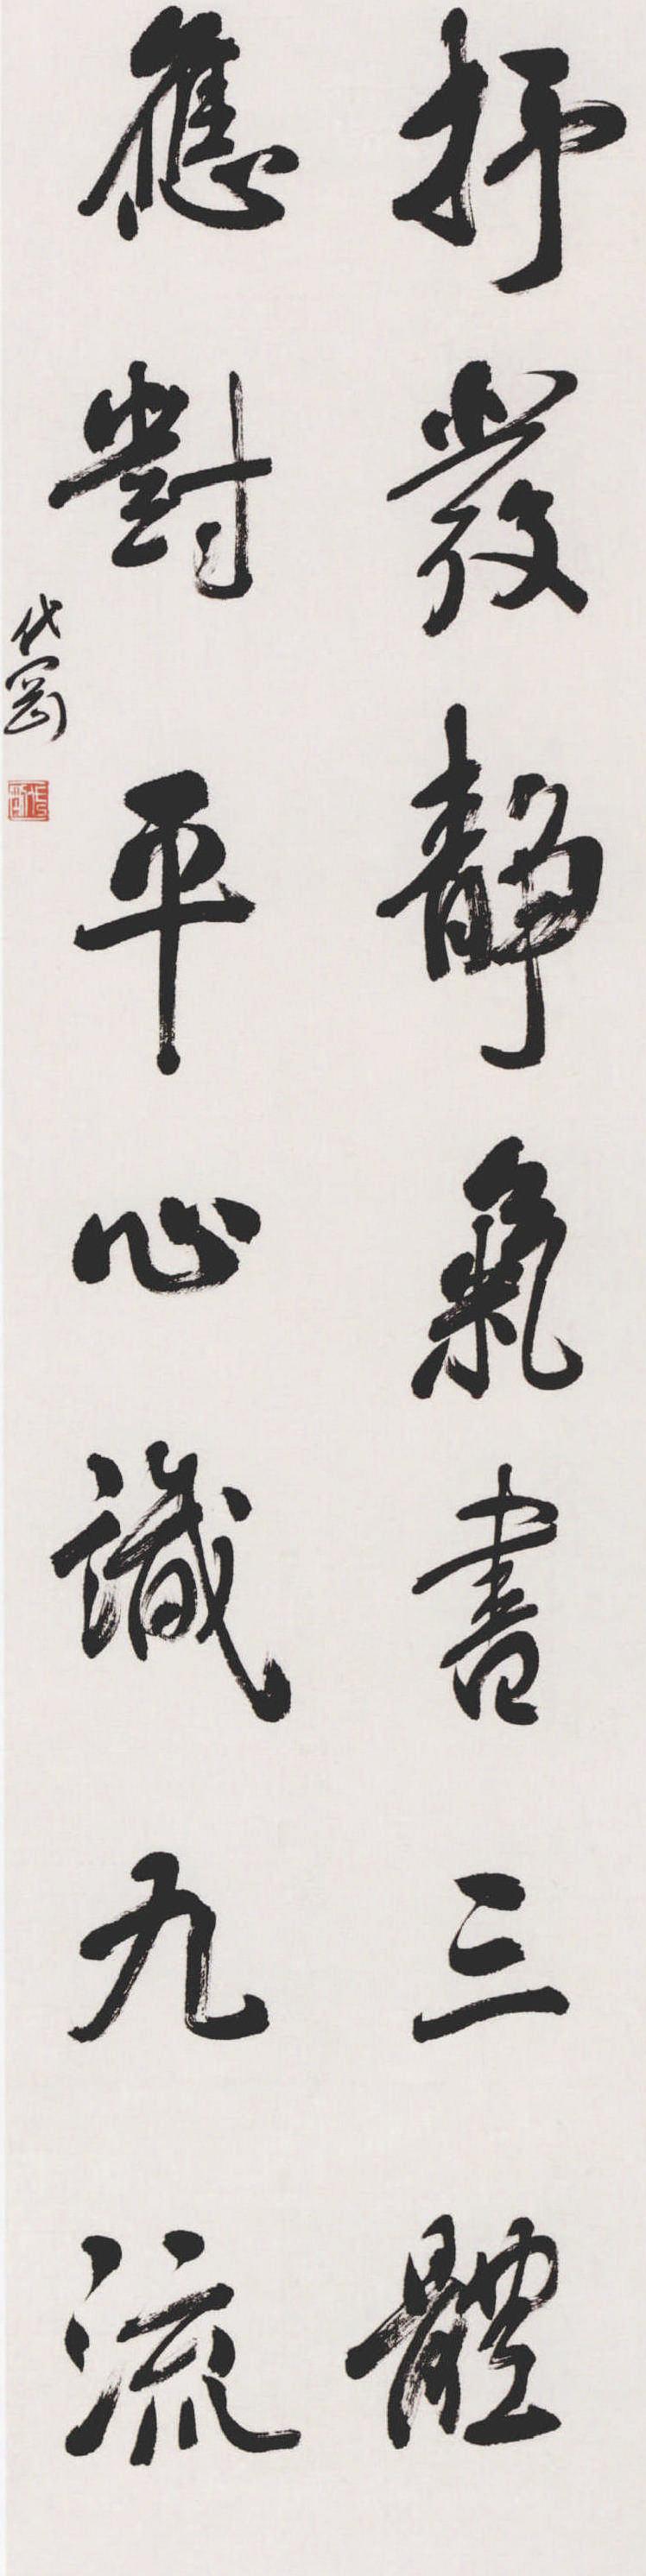 抒發靜氣書三體
應對平心識九流
代罡